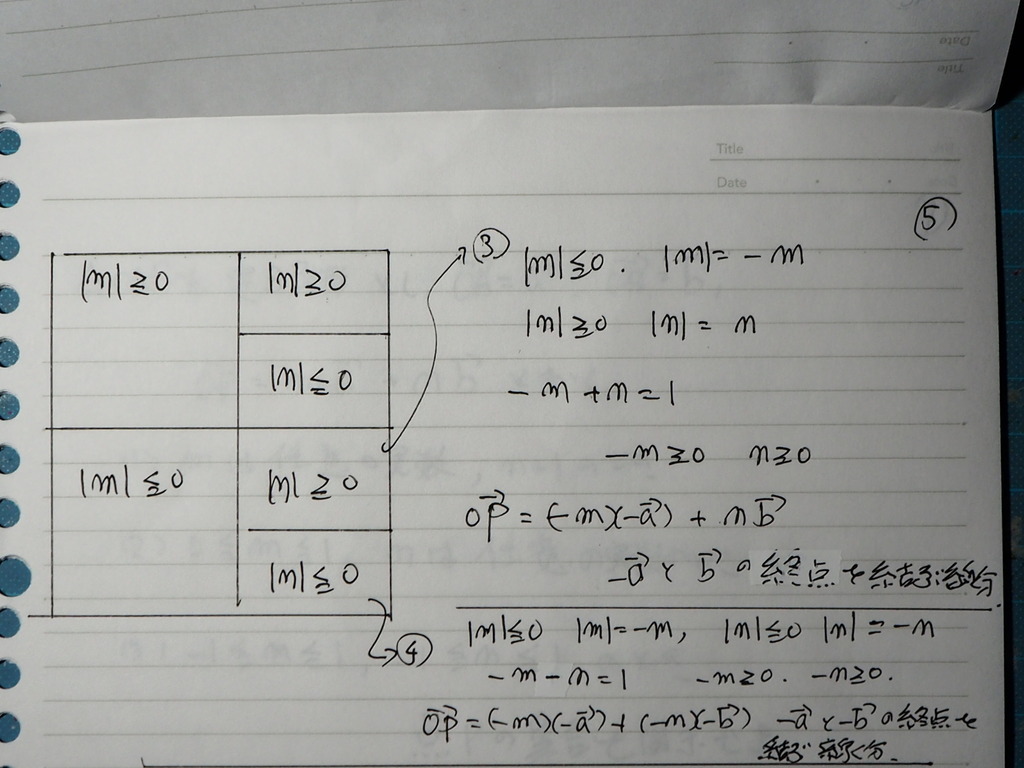 Title
Date
⑤
|m|≧0 |n|≧0
|n|≦0
|m|≦0 |n|≧0
|n|≦0
③ |m|≦0. |m|=-m
|n|≧0 |n|=n
-m+n=1
-m≧0 n≧0
OP→=(-m)(-a→)+nb→
-a→とb→の終点を結ぶ線分.
④ |m|≦0 |m|=-m, |n|≦0 |n|=-n
-m-n=1 -m≧0. -n≧0.
OP→=(-m)(-a→)+(-n)(-b→) -a→と-b→の終点を
結ぶ線分.